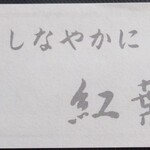 しなやかに
紅葉